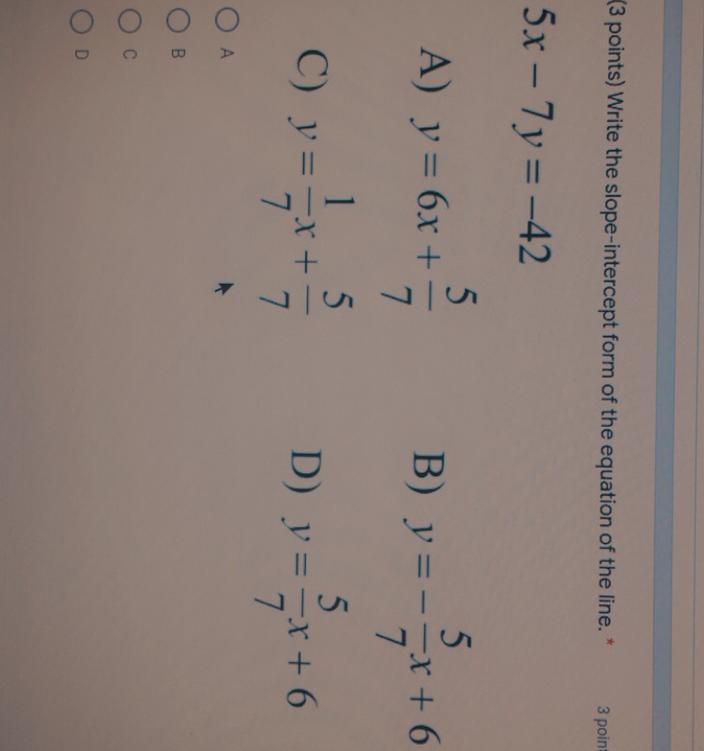 (3 points) Write the slope-intercept form of the equation of the line. *
3 poin
5x − 7y = −42
A) y = 6x + 5/7
B) y = − 5/7 x + 6
C) y = 1/7 x + 5/7
D) y = 5/7 x + 6
A
B
C
D